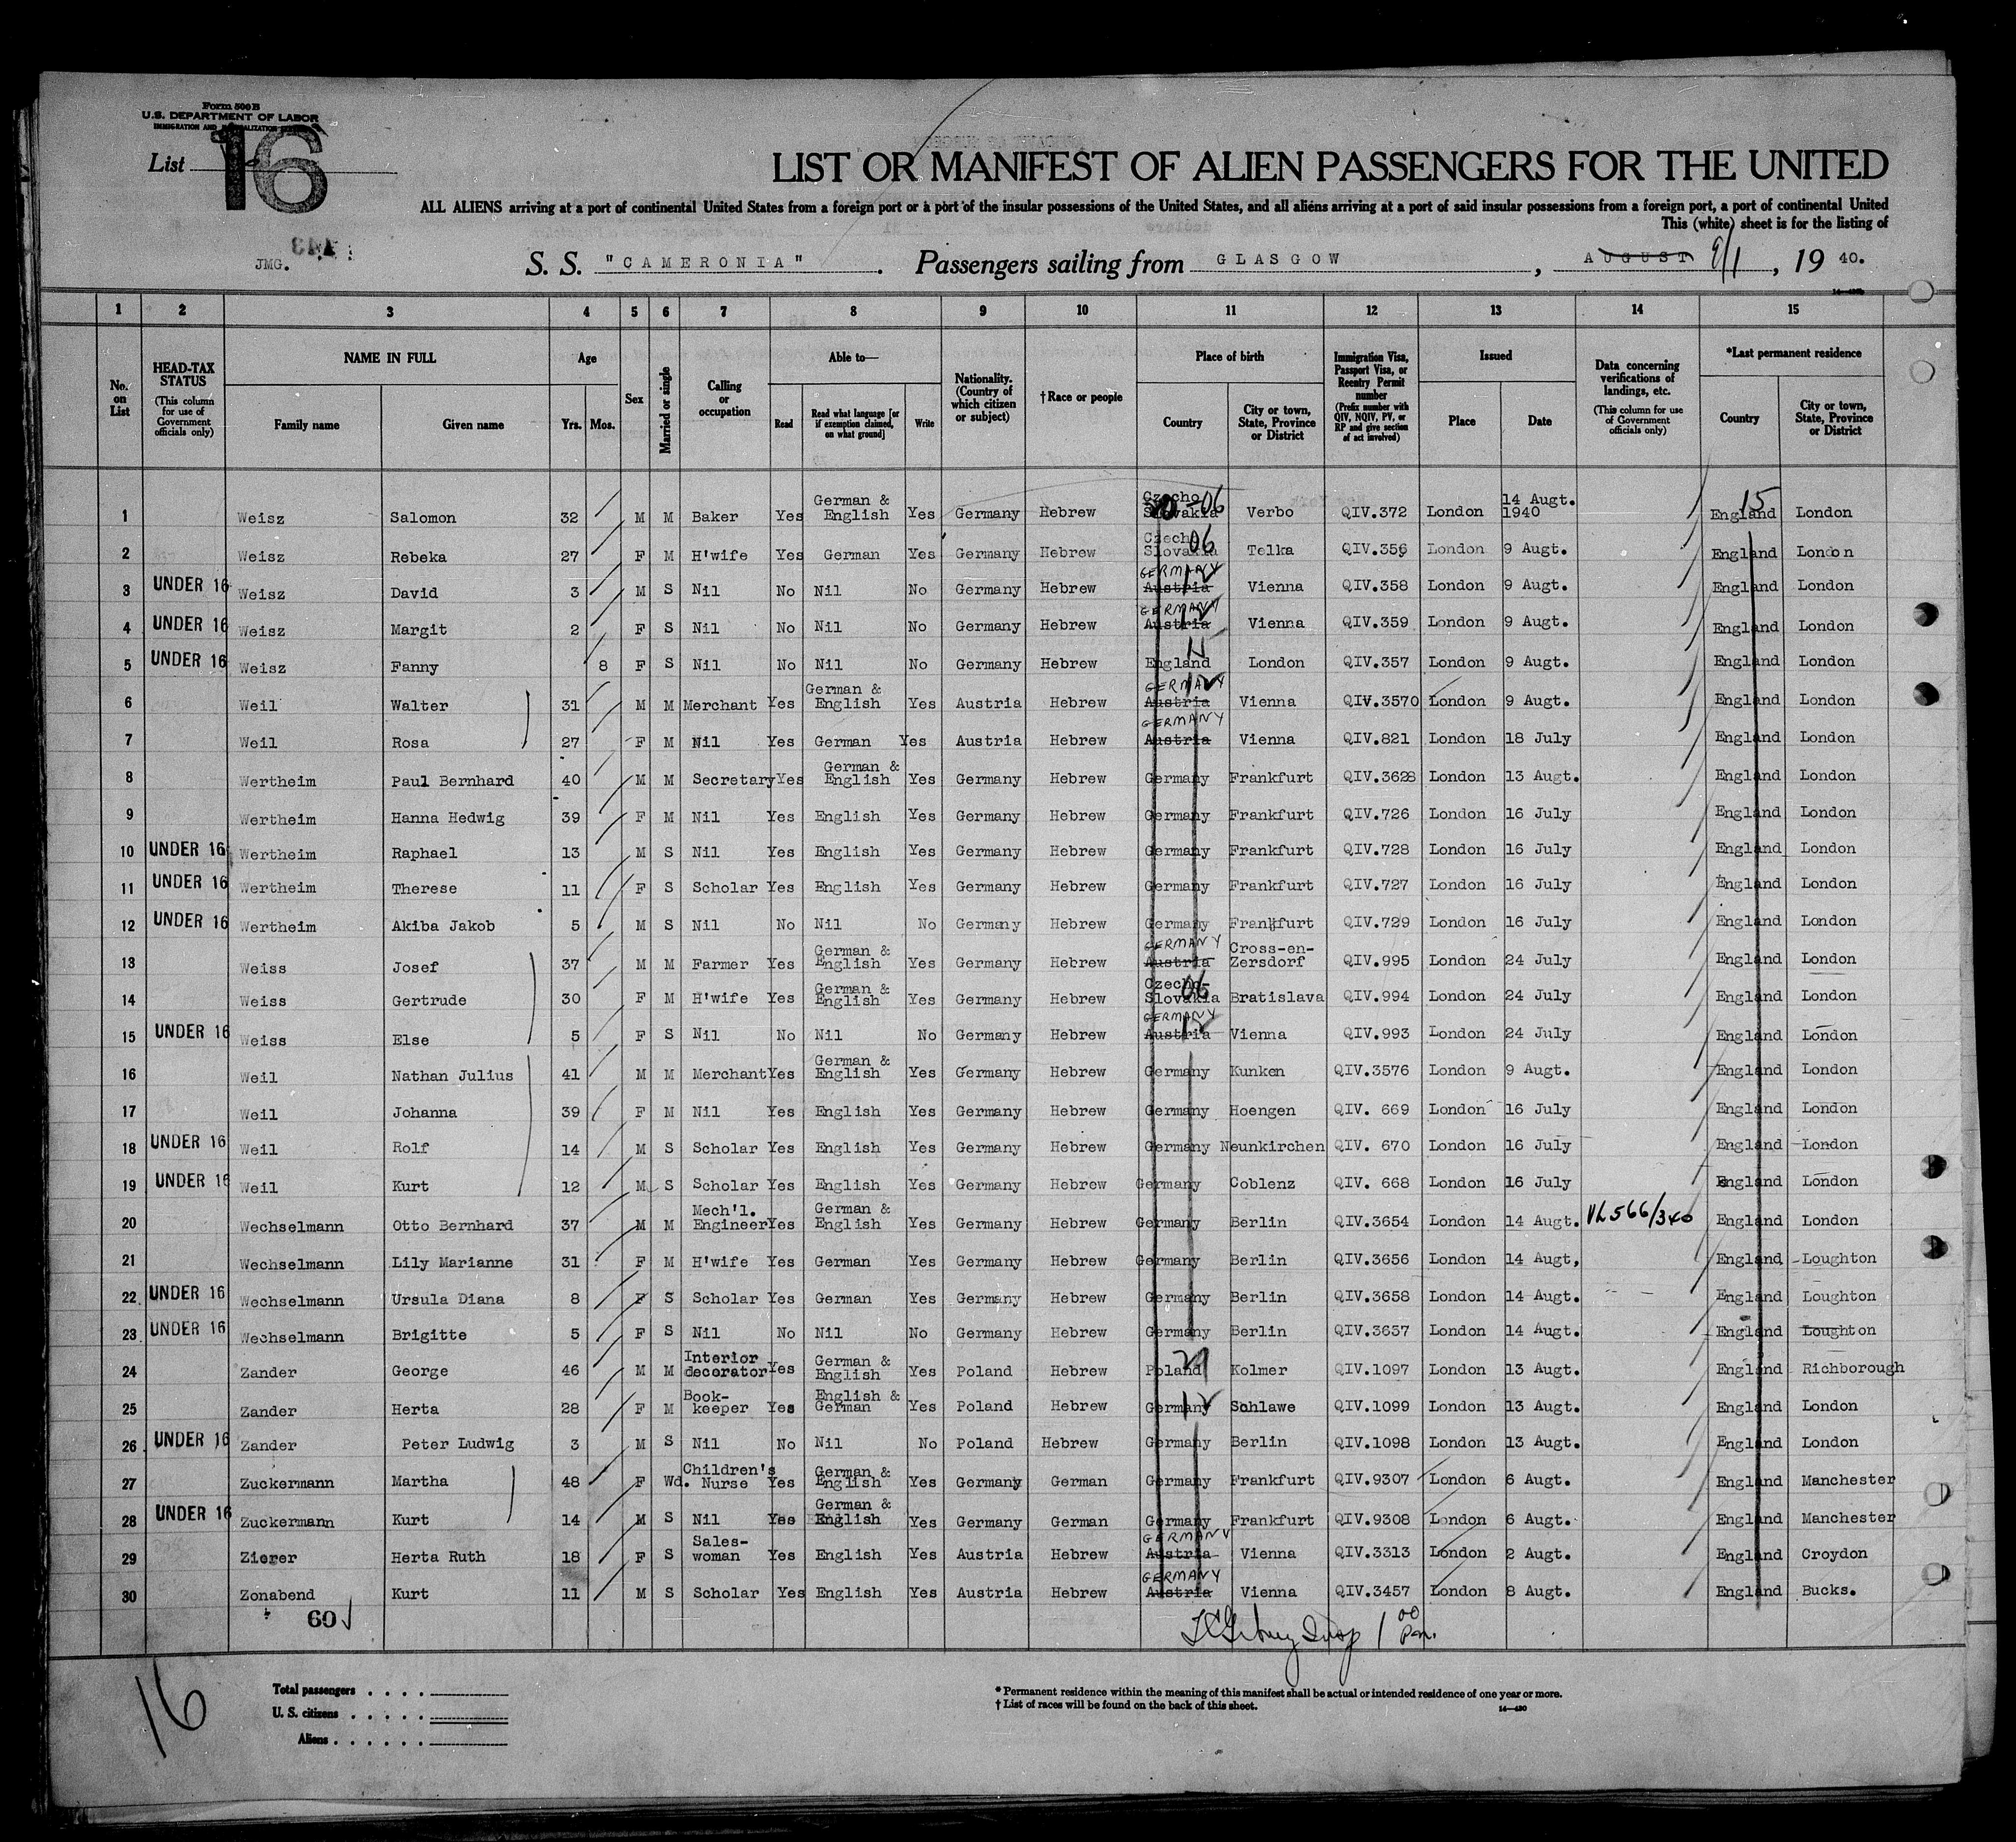 Form 500 B
U.S. DEPARTMENT OF LABOR
IMMIGRATION AND NATURALIZATION SERVICE
List 16
LIST OR MANIFEST OF ALIEN PASSENGERS FOR THE UNITED
ALL ALIENS arriving at a port of continental United States from a foreign port or a port of the insular possessions of the United States, and all aliens arriving at a port of said insular possessions from a foreign port, a port of continental United
This (white) sheet is for the listing of
JMG. S. S. "CAMERONIA". Passengers sailing from GLASGOW, AUGUST 9/1, 19 40.
1 2 3 4 5 6 7 8 9 10 11 12 13 14 15
No. on List HEAD-TAX STATUS (This column for use of Government officials only) NAME IN FULL Family name Given name Age Yrs. Mos. Sex Married or single Calling or occupation Able to— Read Read what language [or if exemption claimed, on what ground] Write Nationality. (Country of which citizen or subject) †Race or people Place of birth Country City or town, State, Province or District Immigration Visa, Passport Visa, or Reentry Permit number (Prefix number with QIV, NQIV, PV, or RP and give section of act involved) Issued Place Date Data concerning verifications of landings, etc. (This column for use of Government officials only) *Last permanent residence Country City or town, State, Province or District
1 Weisz Salomon 32 M M Baker Yes German & English Yes Germany Hebrew Czecho Slovakia 06 Verbo QIV.372 London 14 Augt. 1940 England 15 London
2 Weisz Rebeka 27 F M H'wife Yes German Yes Germany Hebrew Czecho Slovakia 06 Telka QIV.356 London 9 Augt. England London
3 UNDER 16 Weisz David 3 M S Nil No Nil No Germany Hebrew GERMANY Austria 12 Vienna QIV.358 London 9 Augt. England London
4 UNDER 16 Weisz Margit 2 F S Nil No Nil No Germany Hebrew GERMANY Austria 12 Vienna QIV.359 London 9 Augt. England London
5 UNDER 16 Weisz Fanny 8 F S Nil No Nil No Germany Hebrew England 15 London QIV.357 London 9 Augt. England London
6 Weil Walter 31 M M Merchant Yes German & English Yes Austria Hebrew GERMANY Austria 12 Vienna QIV.3570 London 9 Augt. England London
7 Weil Rosa 27 F M Nil Yes German Yes Austria Hebrew GERMANY Austria Vienna QIV.821 London 18 July England London
8 Wertheim Paul Bernhard 40 M M Secretary Yes German & English Yes Germany Hebrew Germany Frankfurt QIV.3628 London 13 Augt. England London
9 Wertheim Hanna Hedwig 39 F M Nil Yes English Yes Germany Hebrew Germany Frankfurt QIV.726 London 16 July England London
10 UNDER 16 Wertheim Raphael 13 M S Nil Yes English Yes Germany Hebrew Germany Frankfurt QIV.728 London 16 July England London
11 UNDER 16 Wertheim Therese 11 F S Scholar Yes English Yes Germany Hebrew Germany Frankfurt QIV.727 London 16 July England London
12 UNDER 16 Wertheim Akiba Jakob 5 M S Nil No Nil No Germany Hebrew Germany Frankfurt QIV.729 London 16 July England London
13 Weiss Josef 37 M M Farmer Yes German & English Yes Germany Hebrew GERMANY Austria Cross-en-Zersdorf QIV.995 London 24 July England London
14 Weiss Gertrude 30 F M H'wife Yes German & English Yes Germany Hebrew Czecho Slovakia 06 Bratislava QIV.994 London 24 July England London
15 UNDER 16 Weiss Else 5 F S Nil No Nil No Germany Hebrew GERMANY Austria 12 Vienna QIV.993 London 24 July England London
16 Weil Nathan Julius 41 M M Merchant Yes German & English Yes Germany Hebrew Germany Kunken QIV.3576 London 9 Augt. England London
17 Weil Johanna 39 F M Nil Yes English Yes Germany Hebrew Germany Hoengen QIV. 669 London 16 July England London
18 UNDER 16 Weil Rolf 14 M S Scholar Yes English Yes Germany Hebrew Germany Neunkirchen QIV. 670 London 16 July England London
19 UNDER 16 Weil Kurt 12 M S Scholar Yes English Yes Germany Hebrew Germany Coblenz QIV. 668 London 16 July England London
20 Wechselmann Otto Bernhard 37 M M Mech'l. Engineer Yes German & English Yes Germany Hebrew Germany Berlin QIV.3654 London 14 Augt. VL566/340 England London
21 Wechselmann Lily Marianne 31 F M H'wife Yes German Yes Germany Hebrew Germany Berlin QIV.3656 London 14 Augt, England Loughton
22 UNDER 16 Wechselmann Ursula Diana 8 F S Scholar Yes German Yes Germany Hebrew Germany Berlin QIV.3658 London 14 Augt. England Loughton
23 UNDER 16 Wechselmann Brigitte 5 F S Nil No Nil No Germany Hebrew Germany Berlin QIV.3657 London 14 Augt. England Loughton
24 Zander George 46 M M Interior decorator Yes German & English Yes Poland Hebrew Poland 29 Kolmer QIV.1097 London 13 Augt. England Richborough
25 Zander Herta 28 F M Book-keeper Yes English & German Yes Poland Hebrew Germany 12 Schlawe QIV.1099 London 13 Augt. England London
26 UNDER 16 Zander Peter Ludwig 3 M S Nil No Nil No Poland Hebrew Germany Berlin QIV.1098 London 13 Augt. England London
27 Zuckermann Martha 48 F Wd. Children's Nurse Yes German & English Yes Germany German Germany Frankfurt QIV.9307 London 6 Augt. England Manchester
28 UNDER 16 Zuckermann Kurt 14 M S Nil Yes German & English Yes Germany German Germany Frankfurt QIV.9308 London 6 Augt. England Manchester
29 Zierer Herta Ruth 18 F S Sales-woman Yes English Yes Austria Hebrew GERMANY Austria Vienna QIV.3313 London 2 Augt. England Croydon
30 Zonabend Kurt 11 M S Scholar Yes English Yes Austria Hebrew GERMANY Austria Vienna QIV.3457 London 8 Augt. England Bucks.
60 Insp 1 00 Pm.
16
Total passengers
U. S. citizens
Aliens
* Permanent residence within the meaning of this manifest shall be actual or intended residence of one year or more.
† List of races will be found on the back of this sheet.
14—430